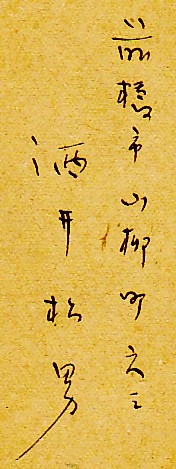 前橋市小柳町六三
酒井松男